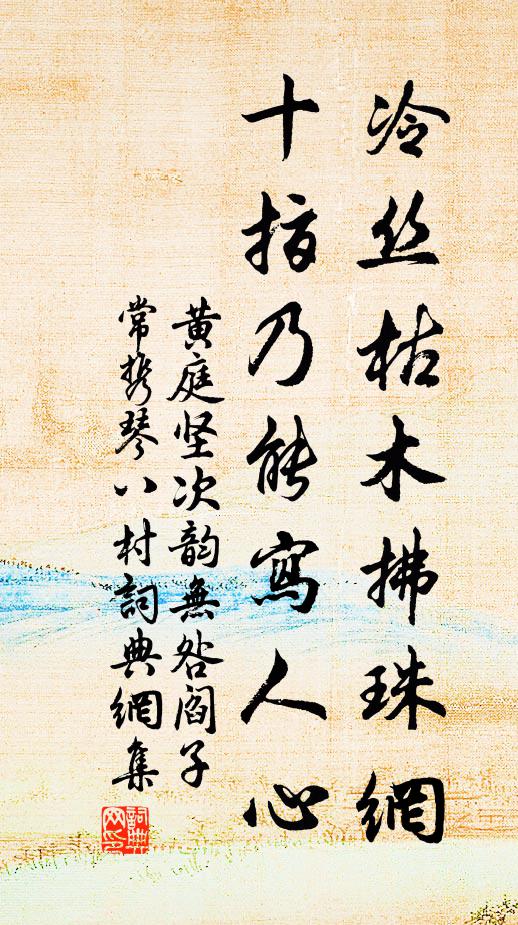 冷丝枯木拂珠網
十指乃能寫人心
黄庭坚次韵無咎阎子
常携琴入村詞典網集
詞典网印